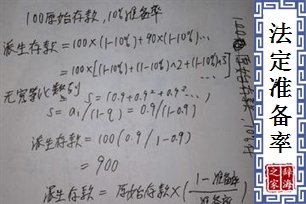 100原始存款,10%准备率
派生存款=100×(1-10%)+90×(1-10%)...
=100×[(1-10%)+(1-10%)^2+(1-10%)^3]...
无穷等比数列
S=(0.9+0.9²+0.9³...)
S=a₁/(1-q)=0.9/(1-0.9)
派生存款=100(0.9/1-0.9)
=900
派生存款=原始存款×(1-准备率/准备率)
法定准备率
辞海之家